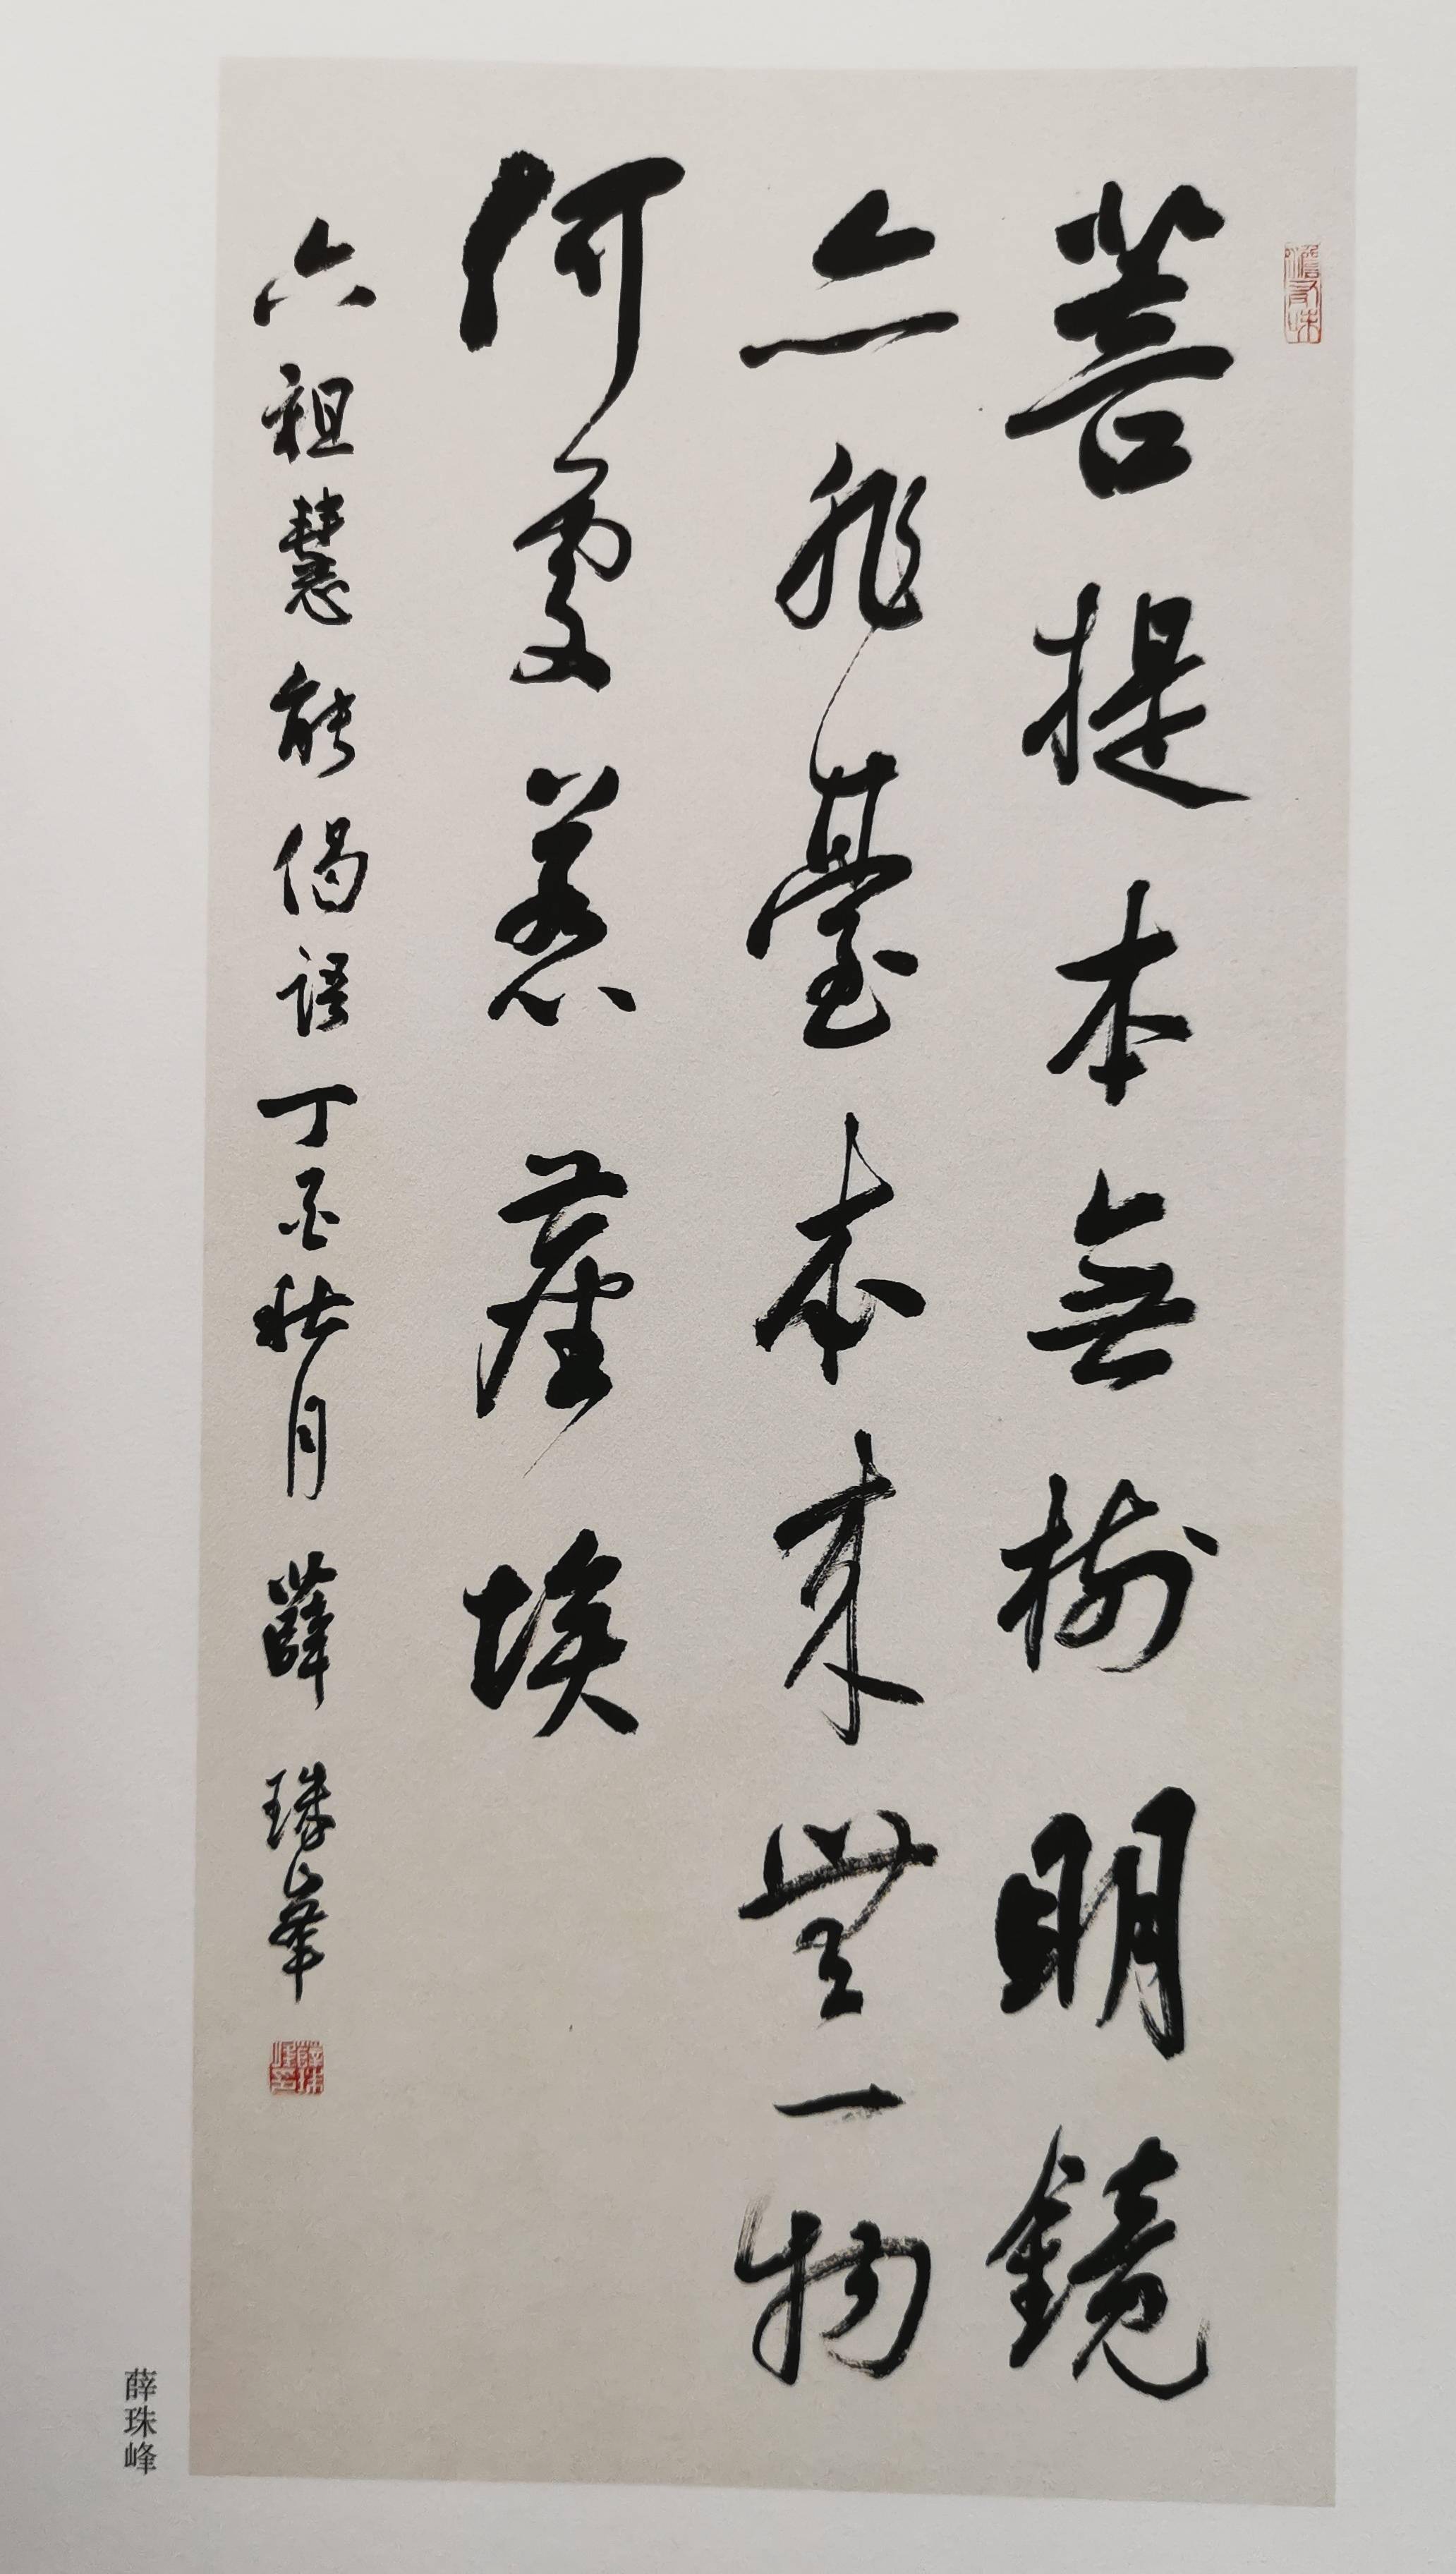 菩提本無樹明鏡
亦非臺本來無一物
何處惹塵埃
六祖慧能偈語丁酉秋月薛珠峯
薛珠峰印
薛珠峰